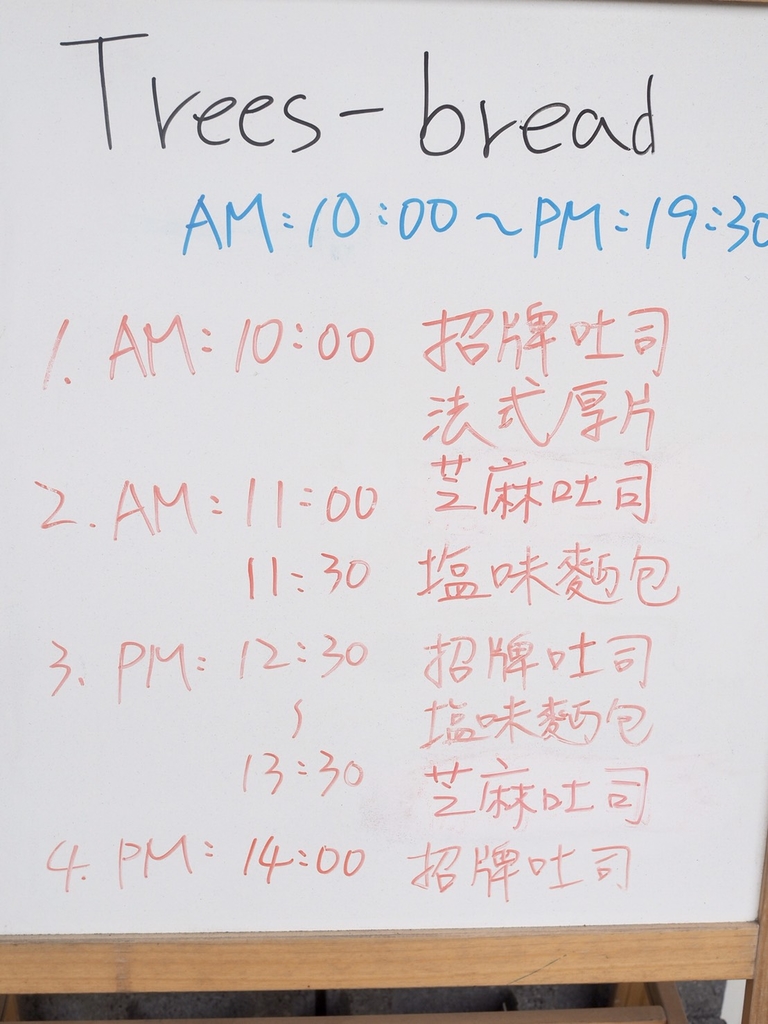 Trees-bread
AM:10:00~PM:19:30
1. AM:10:00 招牌吐司
法式厚片
2. AM:11:00 芝麻吐司
11:30 塩味麵包
3. PM:12:30 招牌吐司
~ 塩味麵包
13:30 芝麻吐司
4. PM:14:00 招牌吐司